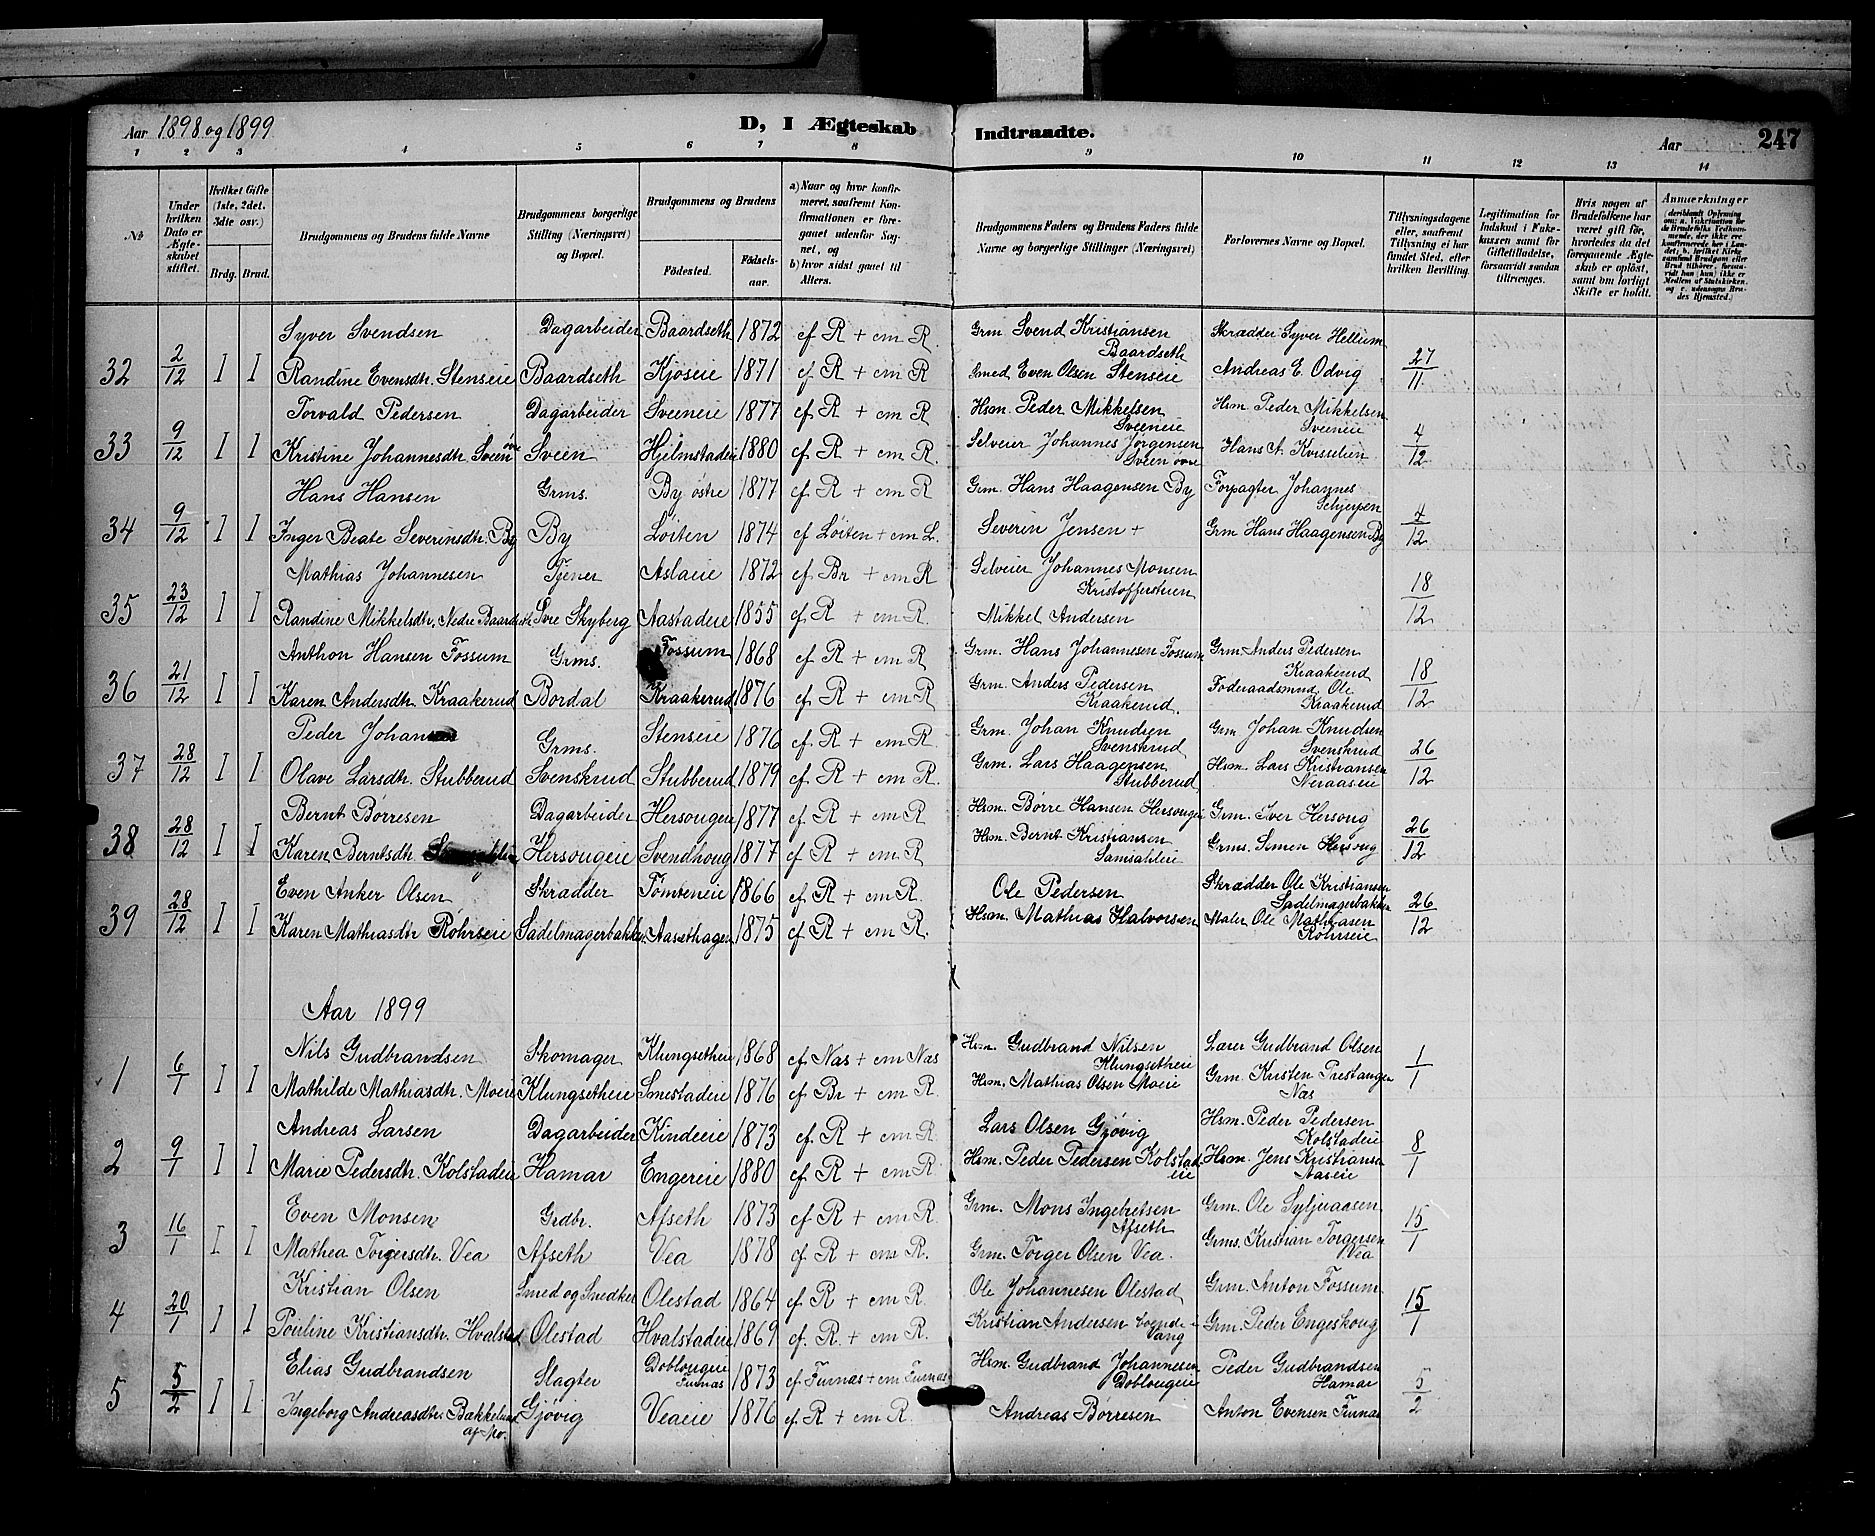 Aar 1898 og 1899
D, I Ægteskab Indtraadte.
Aar 247
1 2 3 4 5 6 7 8 9 10 11 12 13 14
No
Under hvilken Dato er Ægteskabet stiftet.
Hvilket Gifte (1ste, 2det, 3die osv.)
Brdg. Brud.
Brudgommens og Brudens fulde Navne
Brudgommens borgerlige Stilling (Næringsvei) og Bopæl.
Brudgommens og Brudens
Fødested. Fødselsaar.
a) Naar og hvor konfirmeret, saafremt Konfirmationen er foregaaet udenfor Sognet, og
b) hvor sidst gaaet til Alters.
Brudgommens Faders og Brudens Faders fulde Navne og borgerlige Stillinger (Næringsvei)
Forlovernes Navne og Bopæl.
Tillysningsdagene eller, saafremt Tillysning ei har fundet Sted, efter hvilken Bevilling.
Legitimation for Indskud i Enkekassen samt for Giftetilladelse, forsaavidt saadan tiltrænges.
Hvis nogen af Brudefolkene har været gift før, hvorledes da det foregaaende Ægteskab er opløst, samt om lovligt Skifte er holdt.
Anmærkninger
Syver Svendsen Dagarbeider Baardseth 1872 cf R + cm R. Grm Svend Kristiansen Baardseth Skrædder Syver Hellium
32 2/12 I I Randine Evensdtr. Stenseie Baardseth Kjøseie 1871 cf R + cm R Smed Even Olsen Stenseie Andreas E. Odvig 27/11.
Torvald Pedersen Dagarbeider Sveeneie 1877 cf R + cm R Hsm. Peder Mikkelsen Sveeneie Hsm. Peder Mikkelsen Sveeneie
33 9/12 I I Kristine Johannesdtr. Sveen øvre Sveen Hjelmstadeie 1880 cf R + cm R. Selveier Johannes Jørgensen Sveen øvre Hans A. Kvisselien 4/12
Hans Hansen Grms. By østre 1877 cf R + cm R Grm. Hans Haagensen By Forpagter Johannes Schjerpen
34 9/12 I I Inger Beate Severinsdtr. By By Løiten 1874 cf Løiten + cm L. Severin Jensen + Grm Hans Haagensen By 4/12
Mathias Johannesen Tjener Aslaeie 1872 cf Br + cm R Selveier Johannes Monsen Kristofferstuen
35 23/12 I I Randine Mikkelsdtr. Nedre Baardseth Svre Skyberg Aastadeie 1855 cf R + cm R. Mikkel Andersen 18/12
Anthon Hansen Fossum Grms. Fossum 1868 cf R + cm R Grm. Hans Johannesen Fossum Grm. Anders Pedersen Kraakerud
36 21/12 I I Karen Andersdtr. Kraakerud Bordal Kraakerud 1876 cf R + cm R Grm. Anders Pedersen Kraakerud. Føderaadsmnd. Ole Kraakerud 18/12
Peder Johansen Grms. Stenseie 1876 cf R + cm R. Grm. Johan Knudsen Svenskrud Grm Johan Knudsen Svenskrud
37 28/12 I I Olave Larsdtr. Stubberud Svenskrud Stubberud 1879 cf R + cm R. Grm. Lars Haagensen Stubberud Hsm. Lars Kristiansen Neraaseie 26/12
Bernt Børresen Dagarbeider Hersougeie 1877 cf R + cm R Hsm. Børre Hansen Hersougeie Grm. Iver Hersoug
38 28/12 I I Karen Berntsdtr. Hersougeie Svendhoug 1877 cf R + cm R Hsm. Bernt Kristiansen Samsahleie Grms. Simen Hersoug 26/12
Even Anker Olsen Skrædder Tømteneie 1866 cf R + cm R. Ole Pedersen Skrædder Ole Kristiansen Sadelmagerbakken
39 28/12 I I Karen Mathiasdtr Rohrseie Sadelmagerbakken Aasethagen 1875 cf R + cm R. Hsm. Mathias Halvorsen Maler Ole Mathiasen Rohrseie 26/12
Aar 1899
Nils Gudbrandsen Skomager Klungsetheie 1868 cf Næs + cm Næs Hsm. Gudbrand Nilsen Klungsetheie Lærer Gudbrand Olsen
1 6/1 I I Mathilde Mathiasdtr. Moeie Klungsetheie Smestadeie 1876 cf Br + cm R. Hsm. Mathias Olsen Moeie Grm. Kristen Prestangen Næs 1/1
Andreas Larsen Dagarbeider Kindeeie 1873 cf. R + cm R. Lars Olsen Gjøvig Hsm. Peder Pedersen Kolstadeie
2 9/1 I I Marie Pedersdtr. Kolstadeie Hamar Engereie 1880 cf R + cm R Hsm. Peder Pedersen Kolstadeie Hsm. Jens Kristiansen Aaseie 8/1
Even Monsen Grdbr. Afseth 1873 cf R + cm R. Grm. Mons Ingebretsen Afseth Grm. Ole Syljuaasen
3 16/1 I I Mathea Torgersdtr. Vea Afseth Vea 1878 cf R + cm R. Grm. Torger Olsen Vea. Grms. Kristian Torgersen Vea 15/1
Kristian Olsen Smed og Snedker Olestad 1864 cf R + cm R. Ole Johannesen Olestad Grm. Anton Fossum
4 20/1 I I Pouline Kristiansdtr. Hvalstad Olestad Hvalstadeie 1869 cf. R + cm R. Kristian Andersen boende i Vang Grm. Peder Engeskoug 15/1
Elias Gudbrandsen Slagter Doblougeie Furnæs 1873 cf Furnæs + cm Furnæs Hsm. Gudbrand Johannesen Doblougeie Peder Gudbrandsen Hamar
5 5/2 I I Ingeborg Andreasdtr. Bækkelund Gjøvig Veaeie 1876 cf R + cm R. Andreas Børresen Anton Evensen Furnæs 5/2